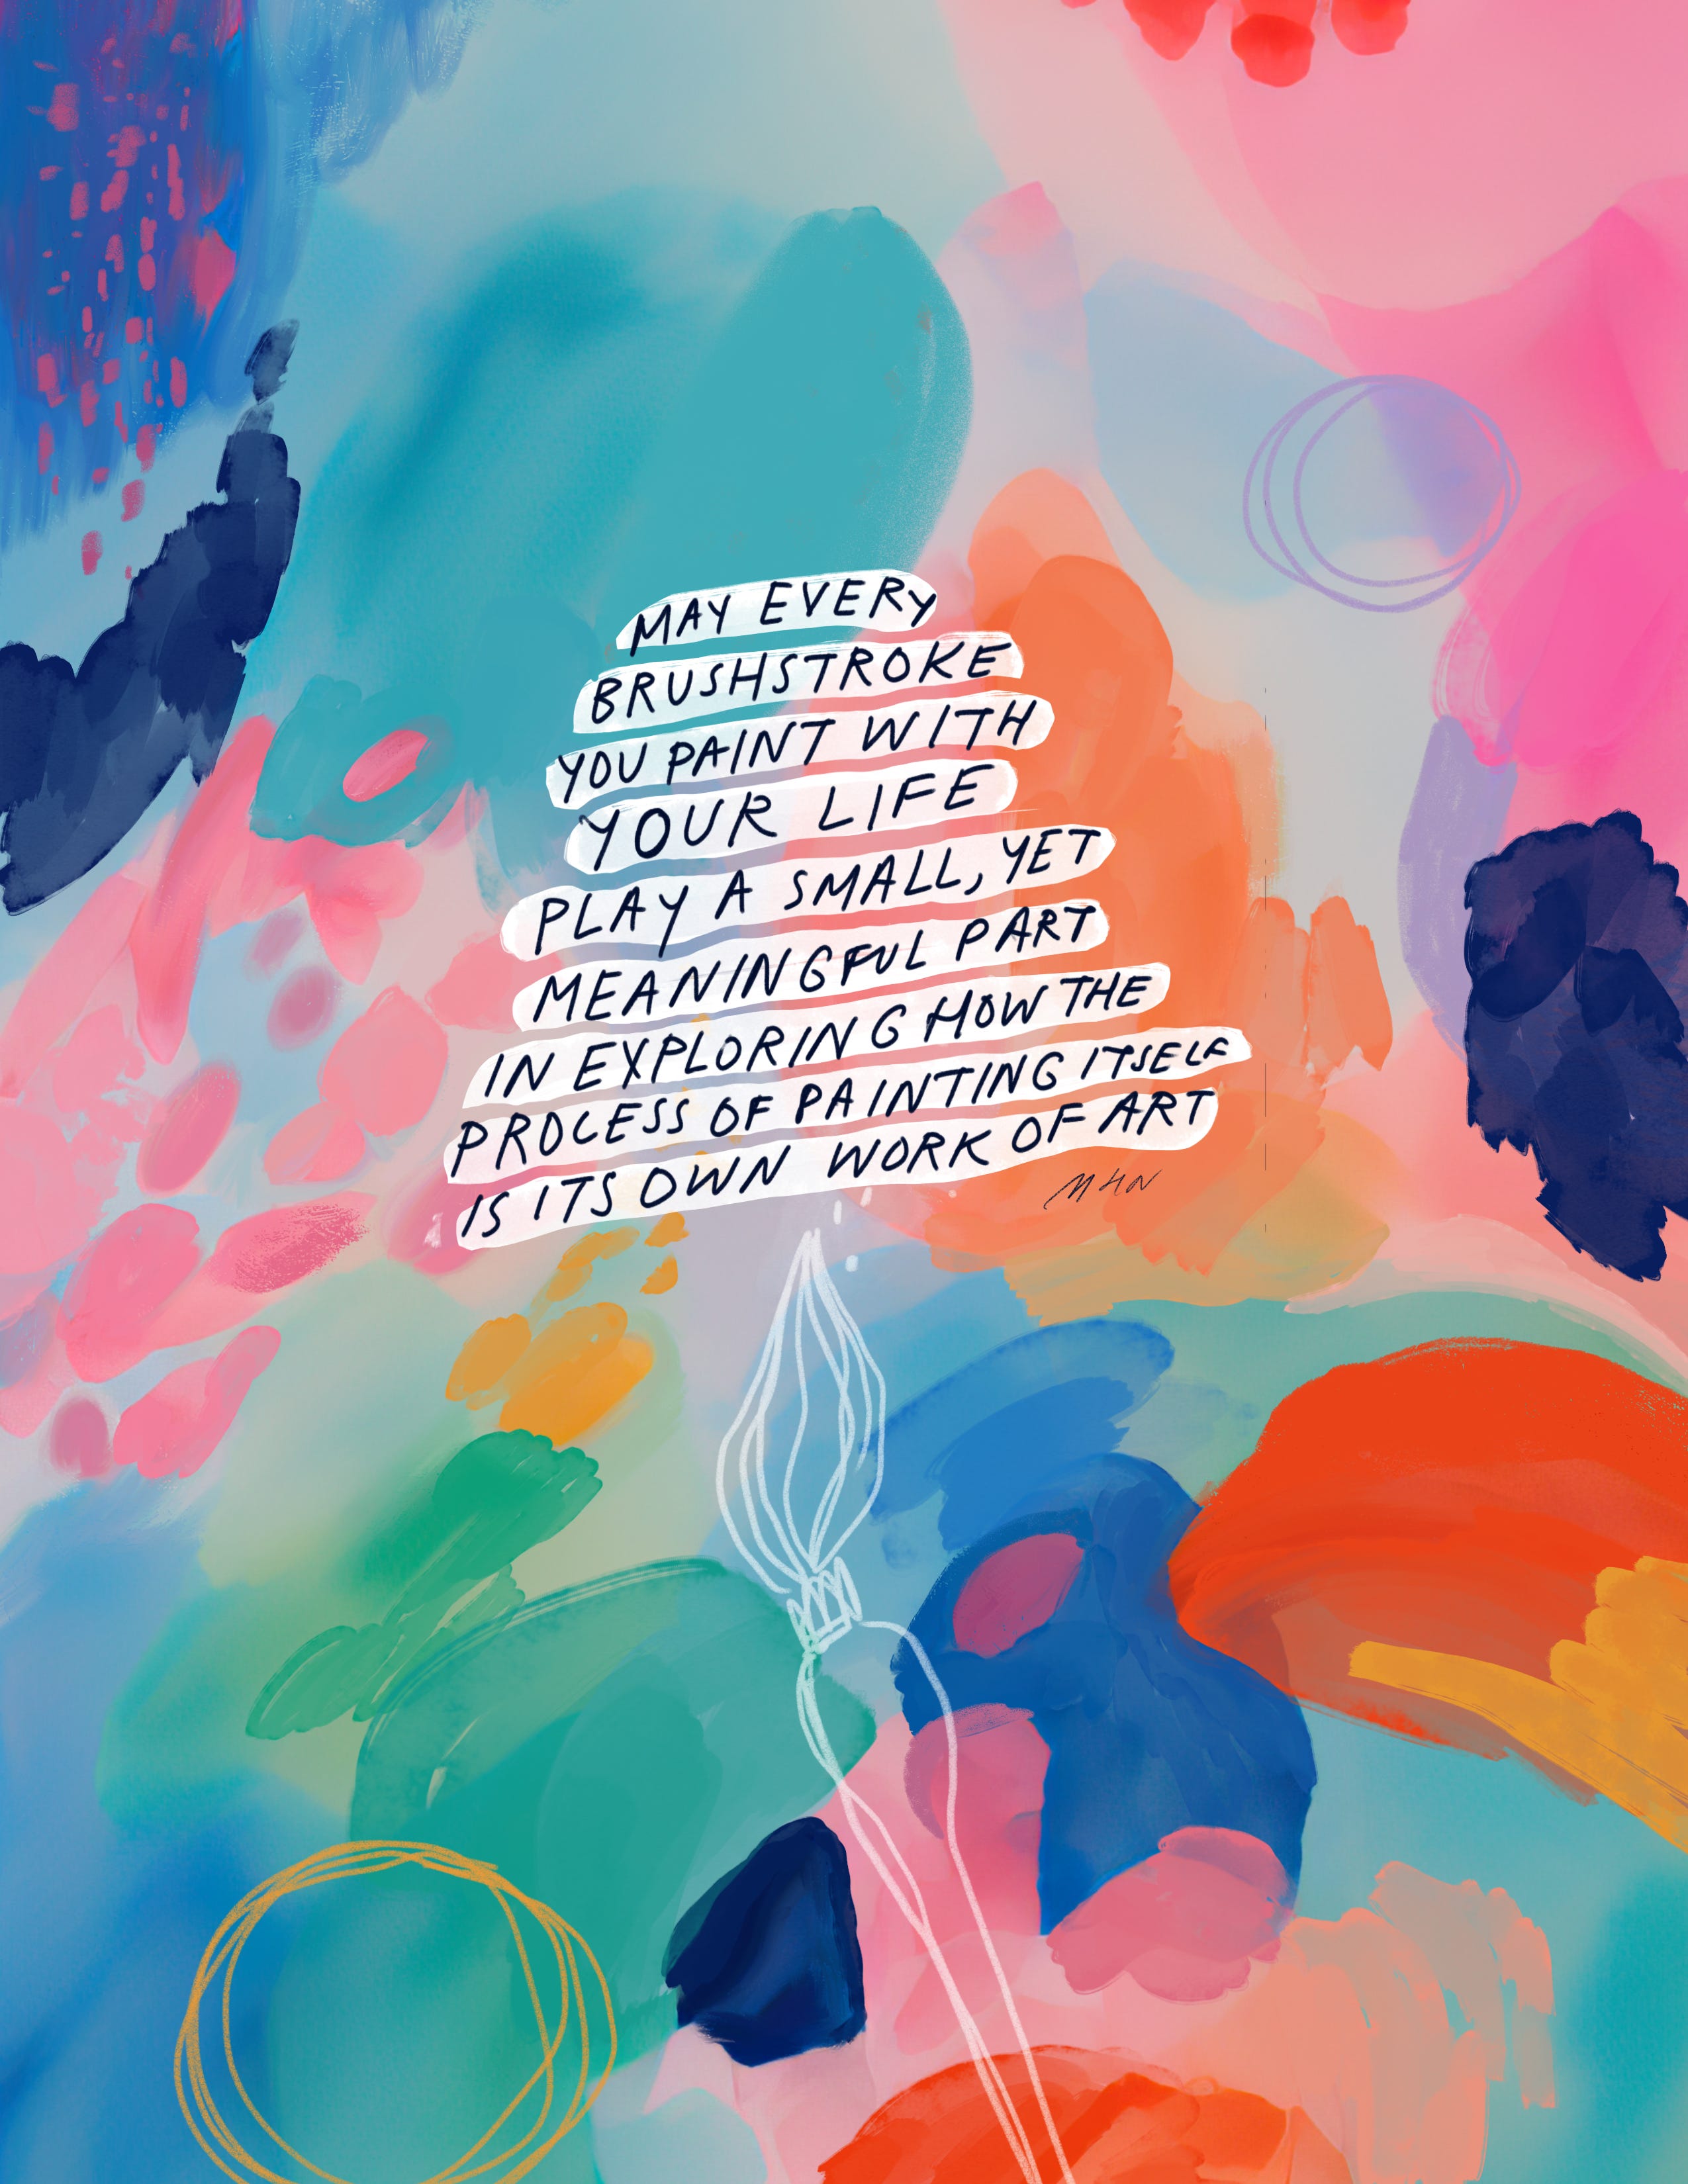 MAY EVERY
BRUSHSTROKE
YOU PAINT WITH
YOUR LIFE
PLAY A SMALL, YET
MEANINGFUL PART
IN EXPLORING HOW THE
PROCESS OF PAINTING ITSELF
IS ITS OWN WORK OF ART
MHN